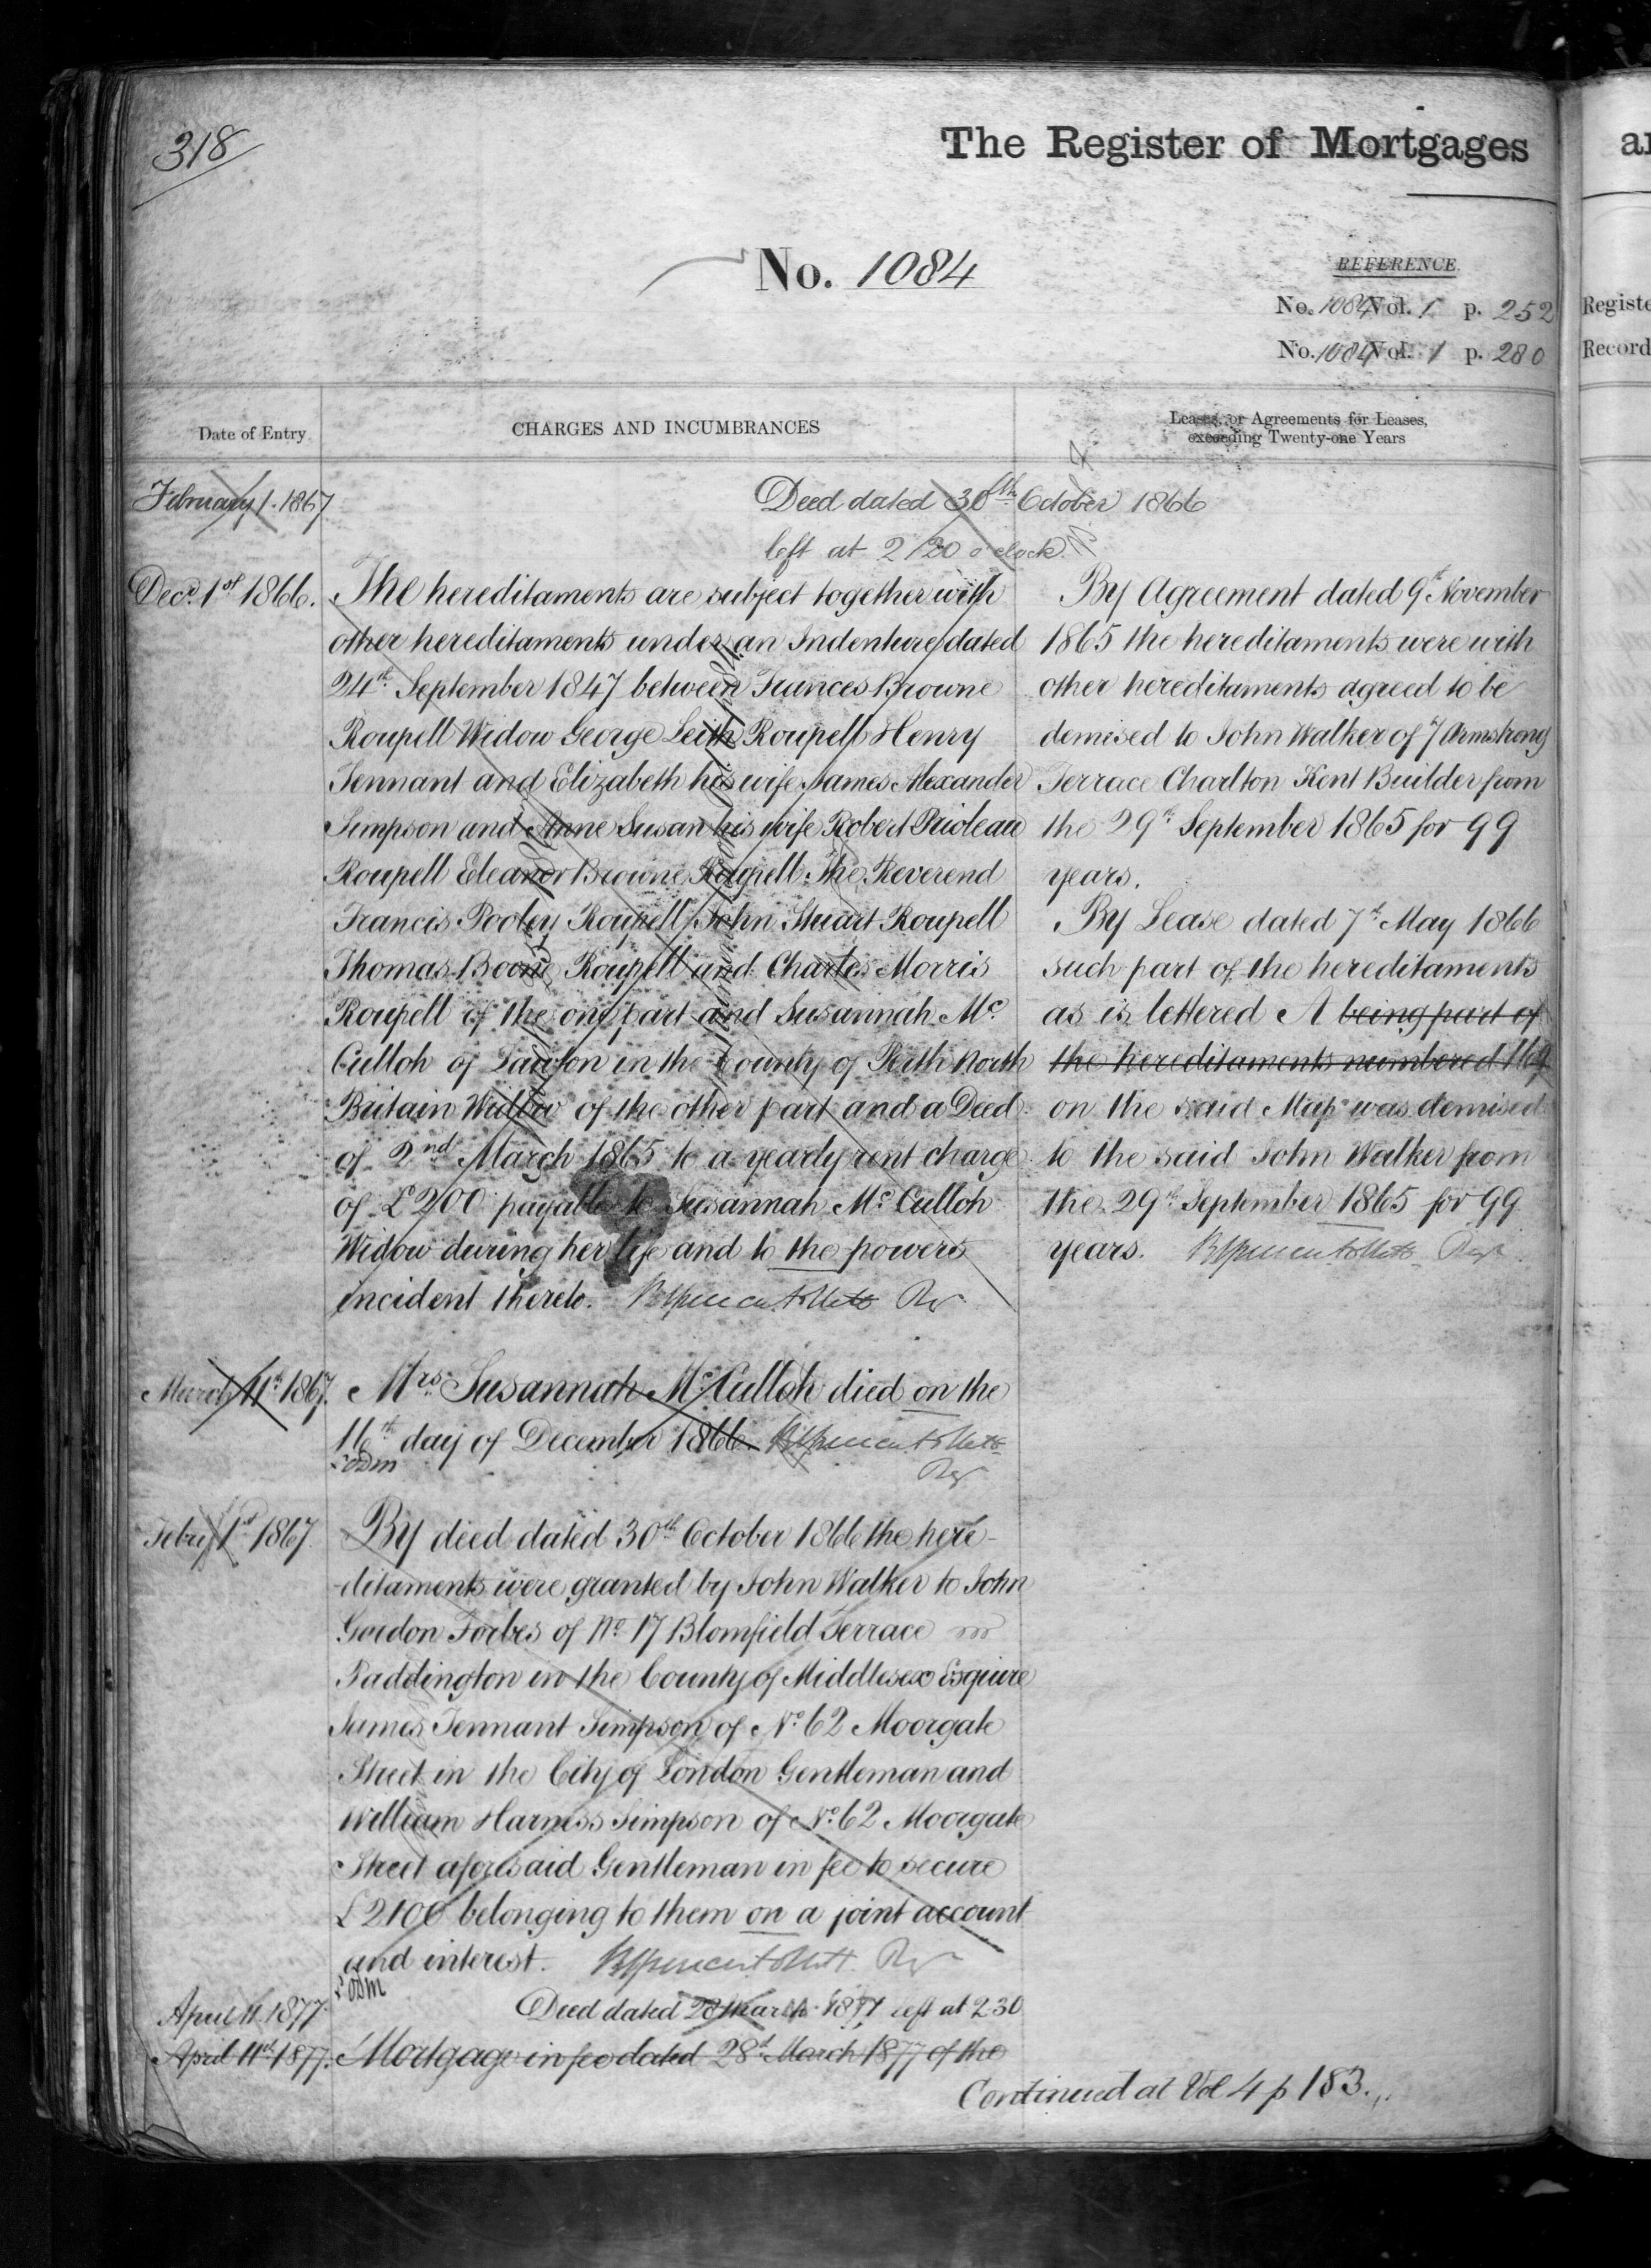 318
The Register of Mortgages
No. 1084
REFERENCE
No. 1084 Vol. 1 p. 252
No. 1084 Vol. 1 p. 280
Registe
Record
Date of Entry
CHARGES AND INCUMBRANCES
Leases, or Agreements for Leases,
exceeding Twenty-one Years
February 1. 1867
Deed dated 30th October 1866
left at 2/20 o'clock
Decr. 1st 1866.
The hereditaments are subject together with
other hereditaments under an Indenture dated
24th September 1847 between Frances Browne
Roupell Widow George Leith Roupell Henry
Tennant and Elizabeth his wife James Alexander
Simpson and Anne Susan his wife Robert Prioleau
Roupell Eleanor Browne Roupell The Reverend
Francis Pooley Roupell John Stuart Roupell
Thomas Boone Roupell and Charles Morris
Roupell of the one part and Susannah Mc.
Culloh of Lawton in the County of Perth North
Britain Widow of the other part and a Deed
of 2nd March 1865 to a yearly rent charge
of £200 payable to Susannah Mc. Culloh
Widow during her life and to the powers
incident thereto. Reg
By Agreement dated 9th November
1865 the hereditaments were with
other hereditaments agreed to be
demised to John Walker of 7 Armstrong
Terrace Charlton Kent Builder from
the 29th September 1865 for 99
years.
By Lease dated 7th May 1866
such part of the hereditaments
as is lettered A being part of
the hereditaments numbered 169
on the said Map was demised
to the said John Walker from
the 29th September 1865 for 99
years.
March 11th 1867.
Mrs. Susannah Mc. Culloh died on the
16th day of December 1866
Reg
Feby 1st 1867.
By deed dated 30th October 1866 the here-
ditaments were granted by John Walker to John
Gordon Forbes of No. 17 Blomfield Terrace
Paddington in the County of Middlesex Esquire
James Tennant Simpson of No. 62 Moorgate
Street in the City of London Gentleman and
William Harness Simpson of No. 62 Moorgate
Street aforesaid Gentleman in fee to secure
£2100 belonging to them on a joint account
and interest. Reg
April 11. 1877.
Deed dated 28 March 1877 left at 2 30
April 11th 1877.
Mortgage in fee dated 28th March 1877 of the
Continued at Vol 4 p 183.